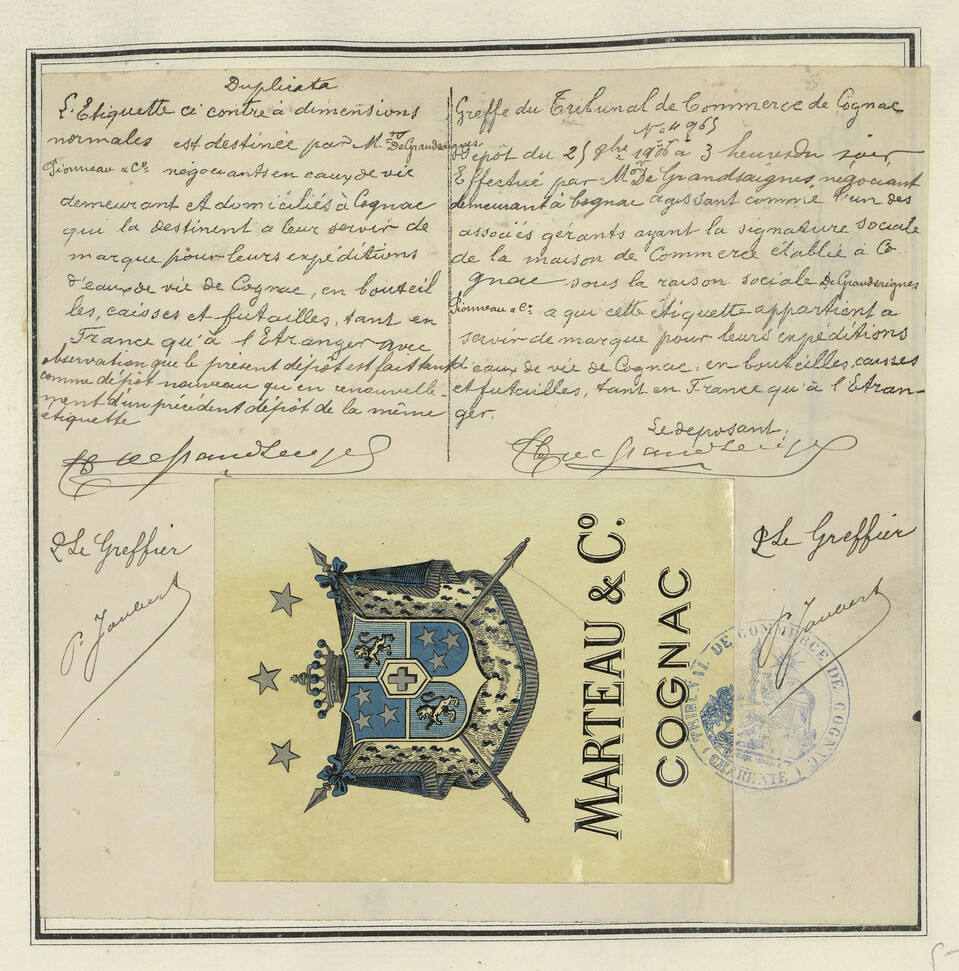 Duplicata
L'Etiquette ci contre à dimensions
normales est destinée par M.rs De Grandsaignes
Pionneau & Co. négociants en eaux de vie
demeurant et domiciliés à Cognac
qui la destinent a leur servir de
marque pour leurs expéditions
d'eaux de vie de Cognac, en bouteil
les, caisses et futailles, tant en
France qu'à l'Etranger avec
observation que le présent dépôt est fait tant
comme dépôt nouveau qu'en renouvelle-
ment d'un précédent dépôt de la même
étiquette
P Le Greffier
P. Joubert
Greffe du Tribunal de Commerce de Cognac
No 4965
Dépôt du 25 8bre 1906 à 3 heures du soir
Effectué par Mr De Grandsaignes, négociant
demeurant à Cognac agissant comme l'un des
associés gérants ayant la signature sociale
de la maison de Commerce établie à Co
gnac sous la raison sociale De Grandsaignes
Pionneau & Co. a qui cette étiquette appartient a
servir de marque pour leurs expéditions
d'eaux de vie de Cognac, en bouteilles, caisses
et futailles, tant en France qu'à l'Etran-
ger.
Le deposant,
P Le Greffier
P. Joubert
MARTEAU & Co.
COGNAC
TRIBUNAL DE COMMERCE DE COGNAC
(CHARENTE)